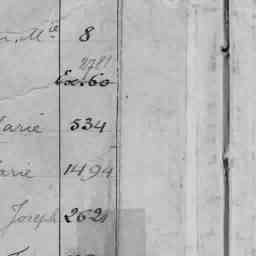 n, Mie 8
2781
Ex. 60
Marie 534
arie 1494
Joseph 2621